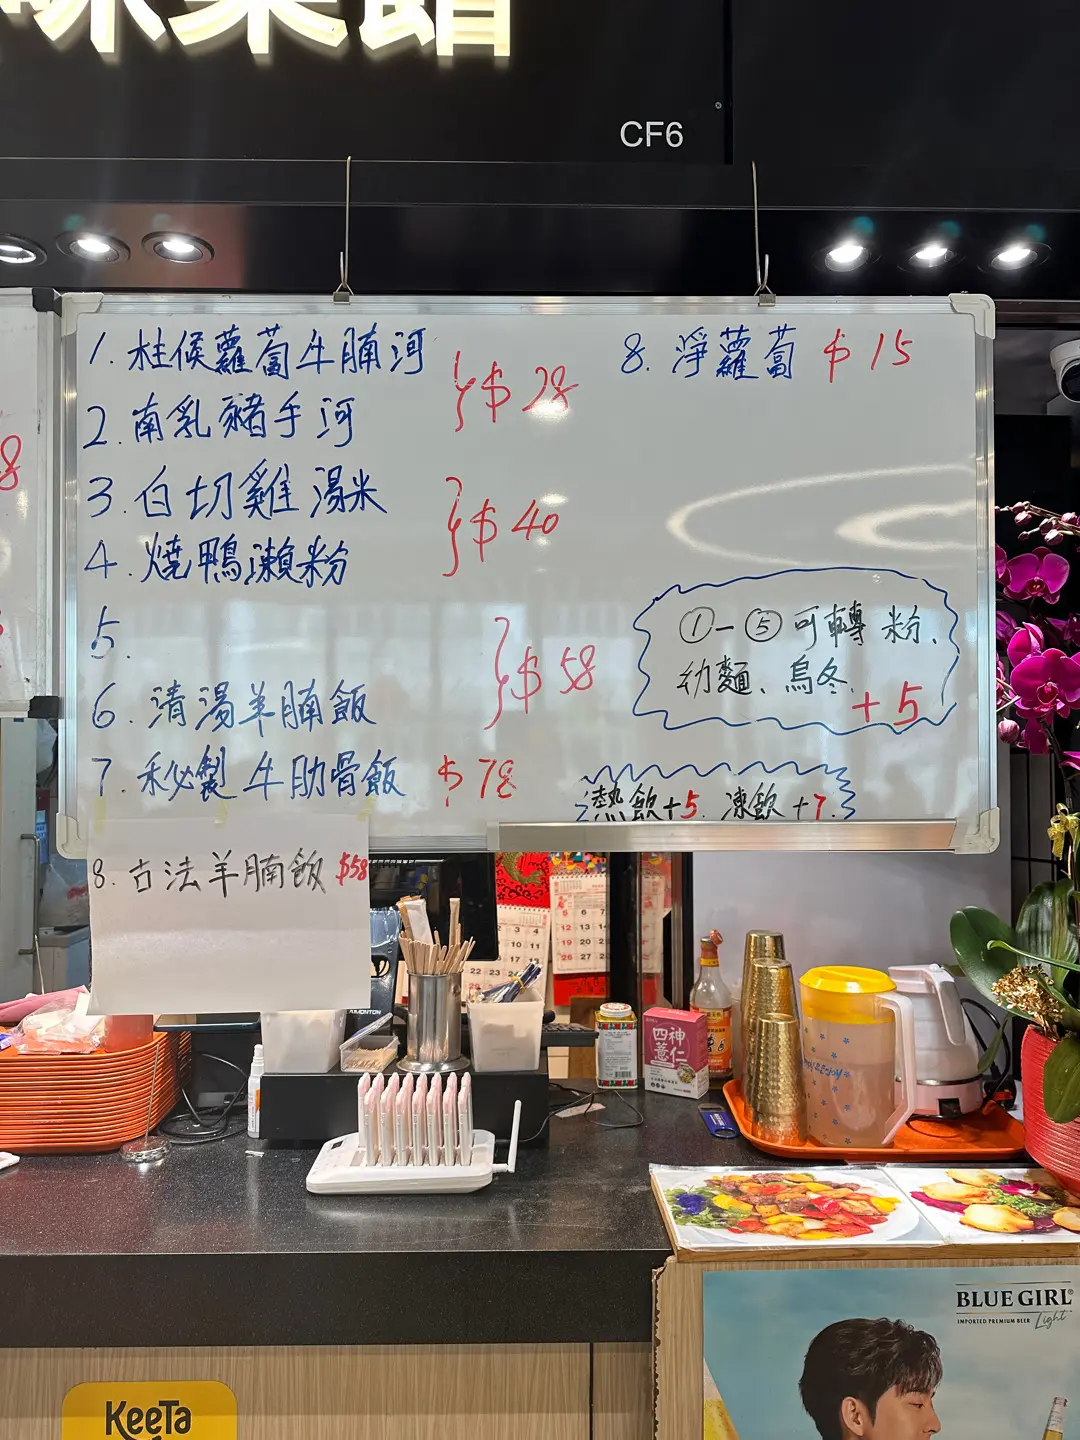 味菜館
CF6
1. 柱候蘿蔔牛腩河
2. 南乳豬手河
} $28
3. 白切雞湯米
4. 燒鴨瀨粉
} $40
5.
6. 清湯羊腩飯
} $58
7. 秘製牛肋骨飯 $78
8. 淨蘿蔔 $15
①-⑤可轉粉、
幼麵、烏冬 +5
熱飲+5. 凍飲+7.
8. 古法羊腩飯 $58
8
四神
薏仁
BLUE GIRL
IMPORTED PREMIUM BEER
Light
KeeTa